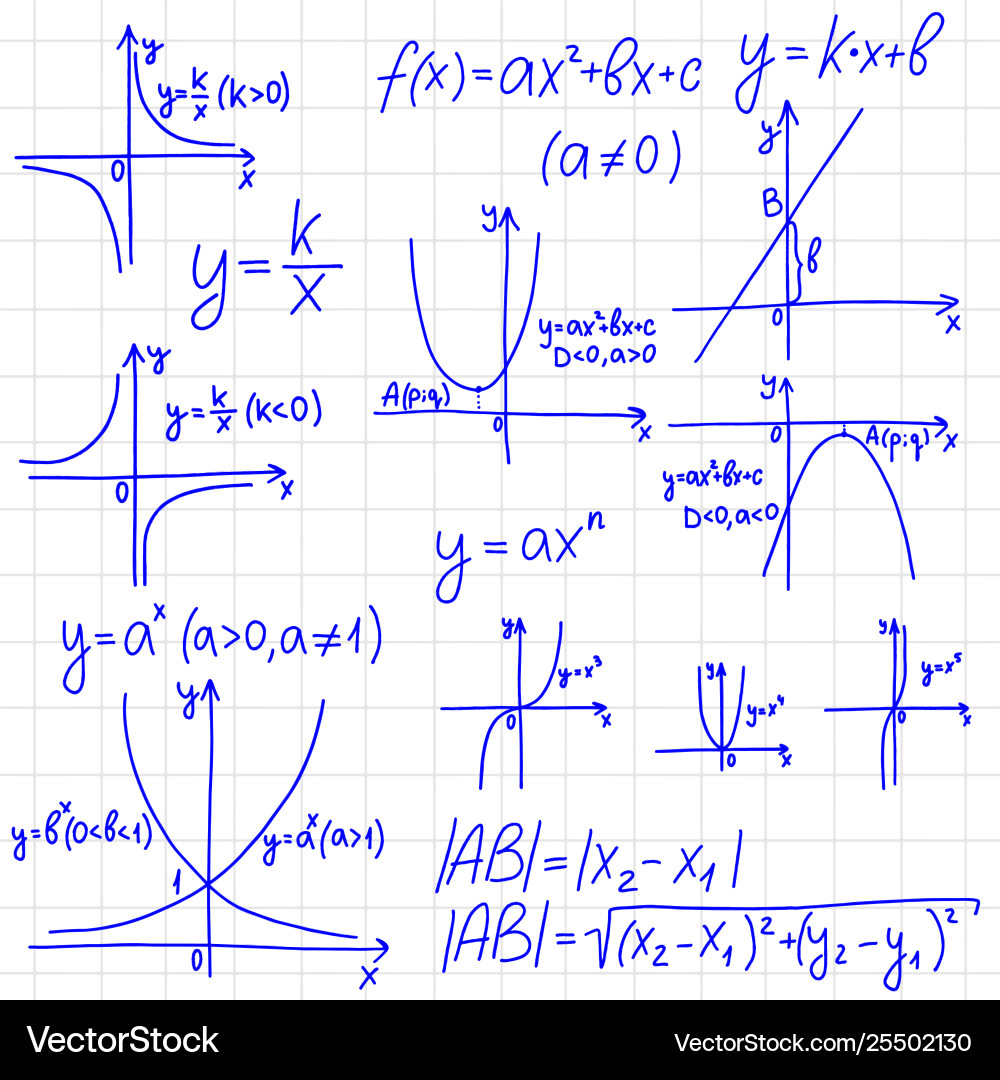 y
y=k/x (k>0)
0
x
f(x)=ax²+bx+c
(a≠0)
y=k·x+b
y
B
b
0
x
y=k/x
y
y=k/x (k<0)
0
x
y
y=ax²+bx+c
D<0,a>0
A(p;q)
0
x
y
0
A(p;q)
x
y=ax²+bx+c
D<0,a<0
y=axⁿ
y=aˣ (a>0,a≠1)
y
y=bˣ(0<b<1)
y=aˣ(a>1)
1
0
x
y
y=x³
0
x
y
y=x⁴
0
x
y
y=x⁵
0
x
|AB|=|x₂-x₁|
|AB|=√(x₂-x₁)²+(y₂-y₁)²
VectorStock®
VectorStock.com/25502130